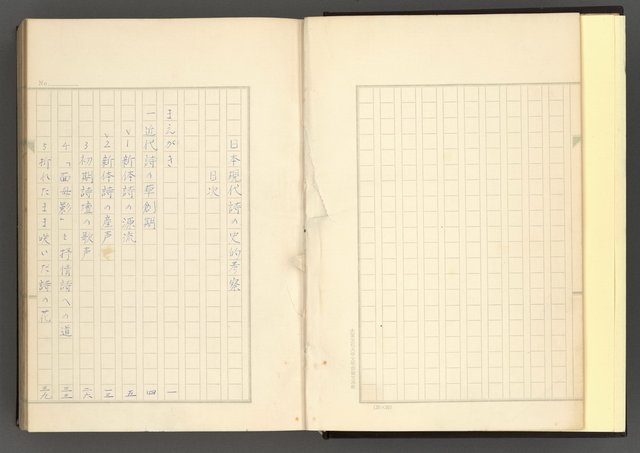 日本現代詩の史的考察
目次
まえがき 一
一 近代詩の草創期 四
1 新体詩の源流 五
2 新体詩の産声 一三
3 初期詩壇の歌声 二六
4 「面母影」と抒情詩への道 三三
5 折れたまま咲いた詩の花 三九
No.
(20×20)